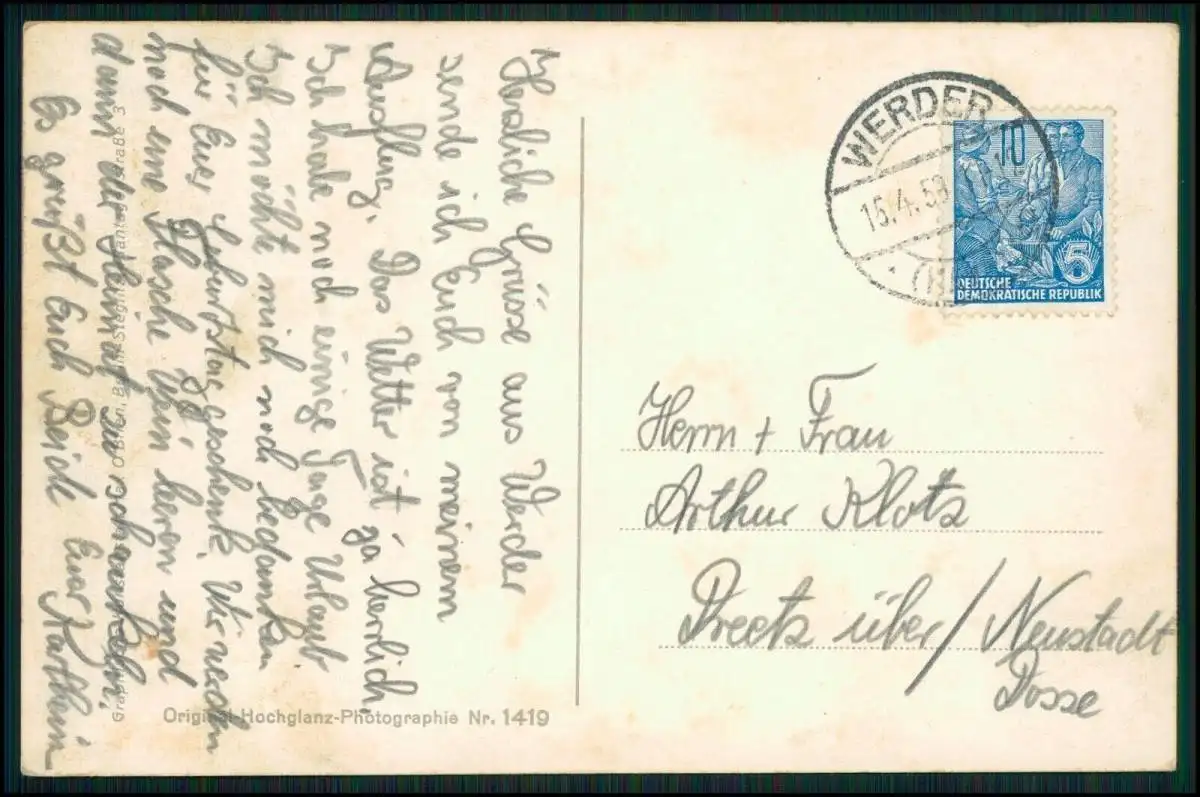 Herzliche Grüße aus Werder
sende ich Euch von meinem
Ausflug. Das Wetter ist ja herrlich.
Ich habe noch einige Tage Urlaub
Ich möchte mich noch bedanken
für Euer Geburtstagsgeschenk. Wir werden
noch eine Flasche Wein leeren und
dann der Heimat zu
Es grüßt Euch Beide Euer
WERDER
15.4.58
10
5
DEUTSCHE
DEMOKRATISCHE REPUBLIK
Herrn + Frau
Arthur Klotz
Dreetz über / Neustadt
Dosse
Original-Hochglanz-Photographie Nr. 1419